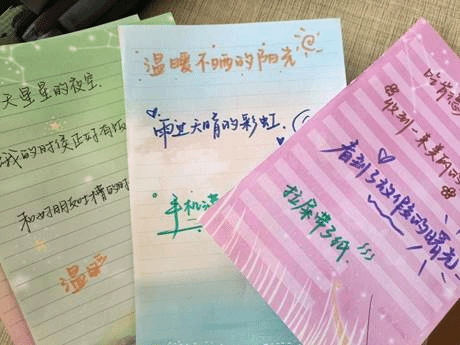 天星星的夜空.
我的时候正好有饭
和好朋友吐槽的时
温暖
温暖不晒的阳光
雨过天晴的彩虹.
手机满
收到一束美丽的
看到了放假的曙光
拉屎带了纸